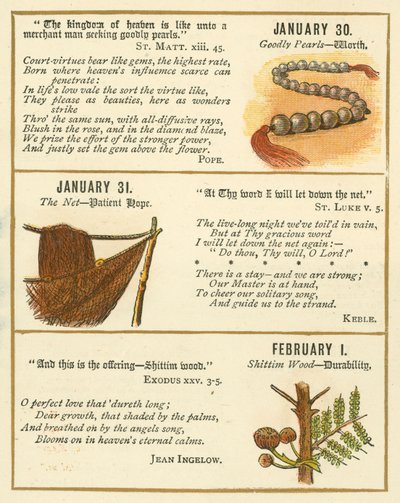 "The kingdom of heaven is like unto a
merchant man seeking goodly pearls."
St. Matt. xiii. 45.
Court-virtues bear like gems, the highest rate,
Born where heaven's influence scarce can
penetrate:
In life's low vale the sort the virtue like,
They please as beauties, here as wonders
strike
Thro' the same sun, with all-diffusive rays,
Blush in the rose, and in the diamond blaze,
We prize the effort of the stronger power,
And justly set the gem above the flower.
Pope.
JANUARY 30.
Goodly Pearls—Worth.
JANUARY 31.
The Net—Patient Hope.
"At Thy word I will let down the net."
St. Luke v. 5.
The live-long night we've toil'd in vain,
But at Thy gracious word
I will let down the net again:—
"Do thou, Thy will, O Lord!"
* * * * * *
There is a stay—and we are strong;
Our Master is at hand,
To cheer our solitary song,
And guide us to the strand.
Keble.
FEBRUARY 1.
Shittim Wood—Durability.
"And this is the offering—Shittim wood."
Exodus xxv. 3-5.
O perfect love that 'dureth long;
Dear growth, that shaded by the palms,
And breathed on by the angels song,
Blooms on in heaven's eternal calms.
Jean Ingelow.